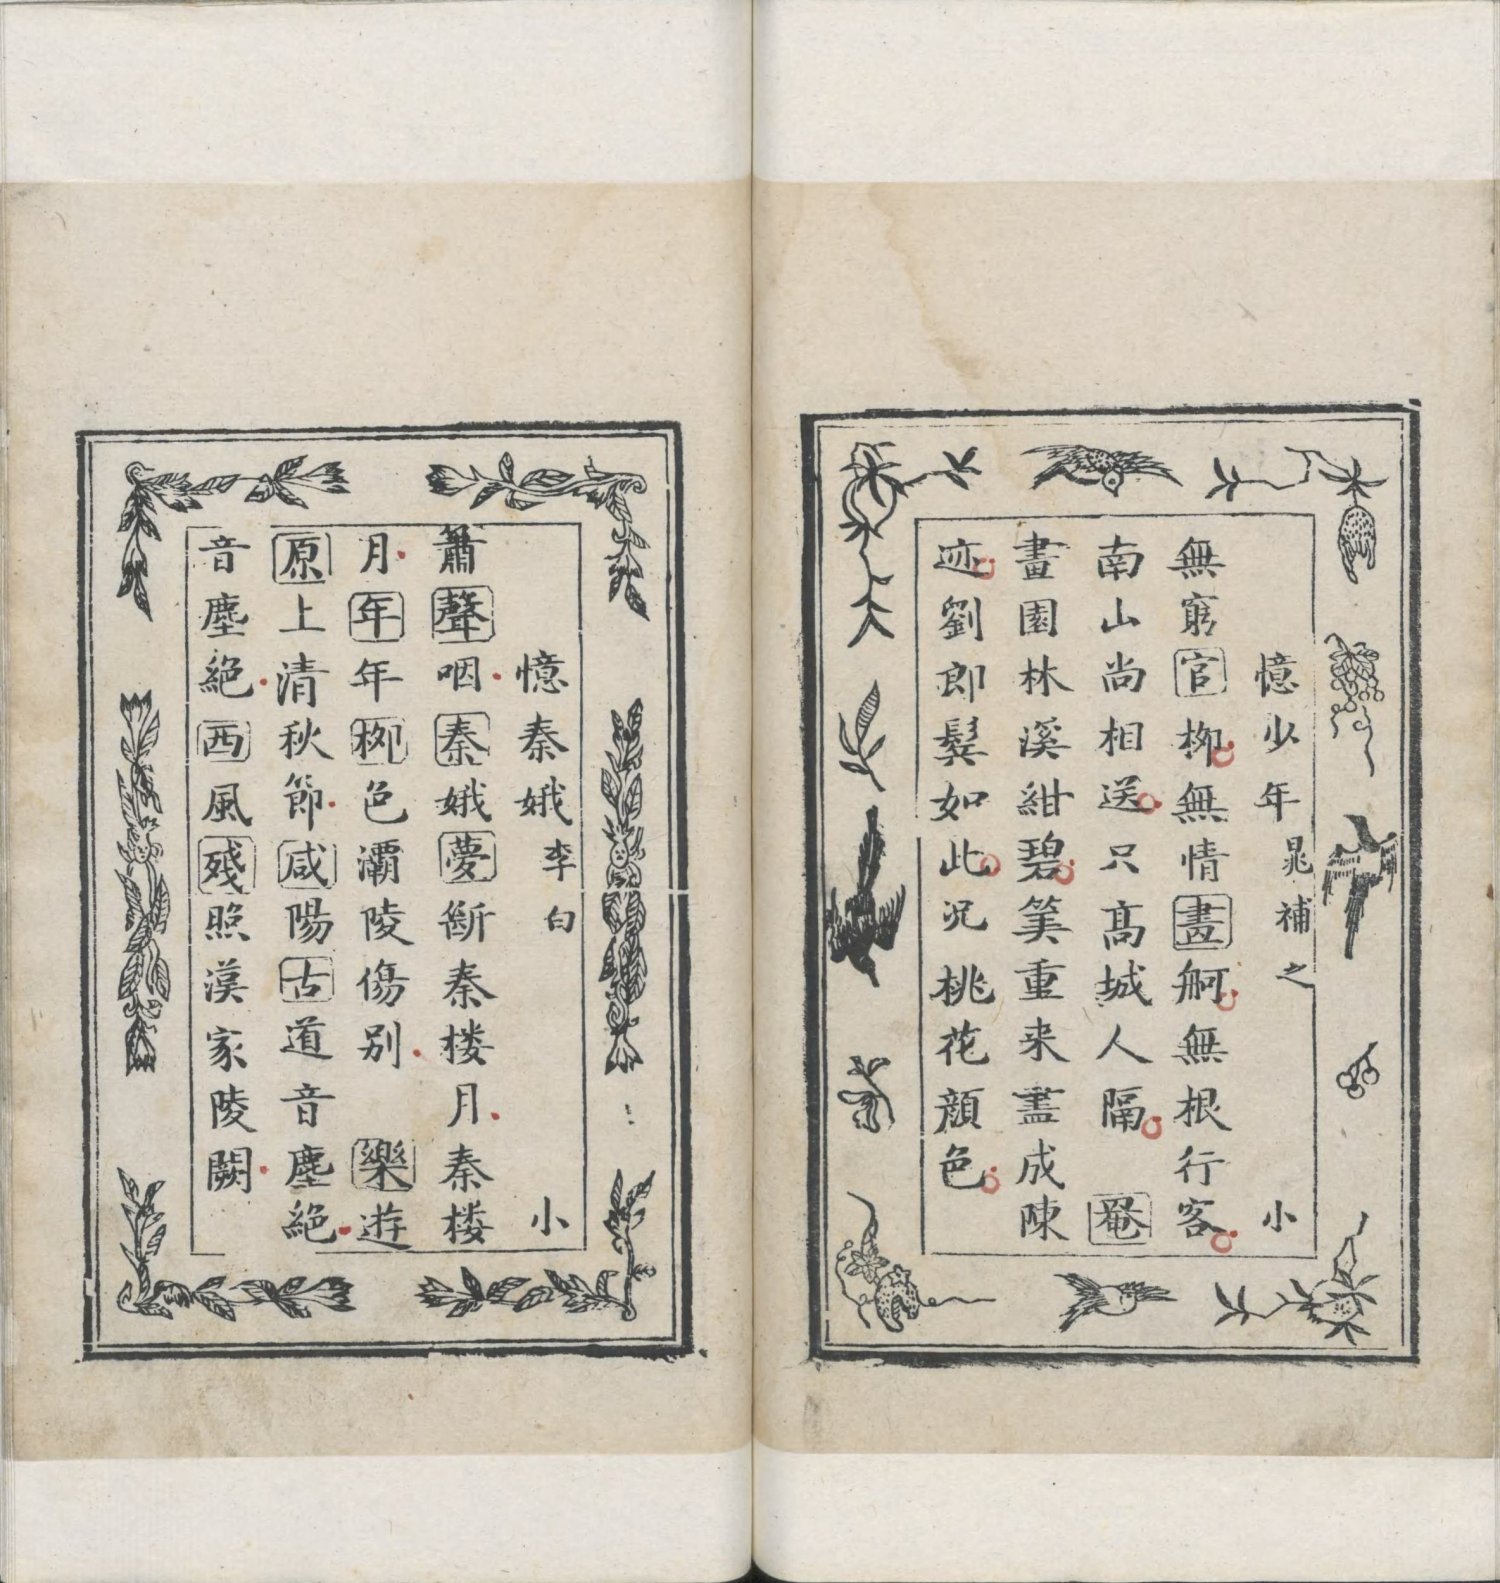 憶少年 晁補之 小
無窮官栁無情畫舸無根行客
南山尚相送只高城人隔 罨
畫園林溪紺碧筭重来盡成陳
迹劉郎鬂如此况桃花顔色
憶秦娥 李白 小
簫聲咽秦娥夢斷秦楼月秦楼
月年年栁色灞陵傷别 樂遊
原上清秋節咸陽古道音塵絶
音塵絶西風殘照漢家陵闕